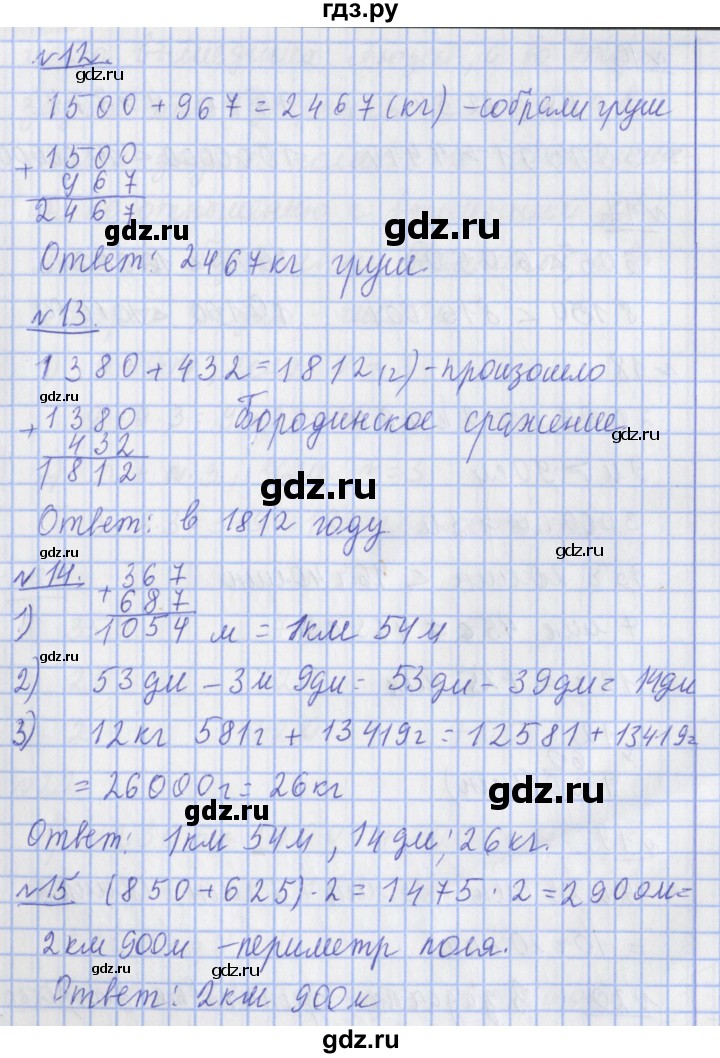 гдз.ру
№12.
gdz.ru
1500 + 967 = 2467 (кг) - собрали груш
gdz.ru
+ 1500
967
2467
gdz.ru
gdz.ru
Ответ: 2467 кг груш.
№13.
1380 + 432 = 1812 (г) - произошло
gdz.ru
+ 1380
432
1812
Бородинское сражение.
gdz.ru
gdz.ru
Ответ: в 1812 году
№14.
+ 367
687
gdz.ru
1) 1054 м = 1км 54м
gdz.ru
2) 53 дм - 3м 9дм = 53 дм - 39 дм = 14дм
3) 12 кг 581г + 13419г = 12581 + 13419г
= 26000г = 26 кг
gdz.ru
gdz.ru
Ответ: 1км 54м, 14 дм; 26 кг.
№15 (850 + 625) · 2 = 1475 · 2 = 2900м =
2 км 900м - периметр поля.
gdz.ru
gdz.ru
Ответ: 2км 900м
gdz.ru